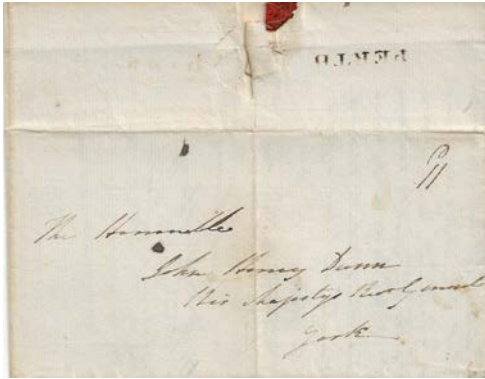 PERTH
The Honourable
John Henry Dunn
His Majestys Rec Genral
York